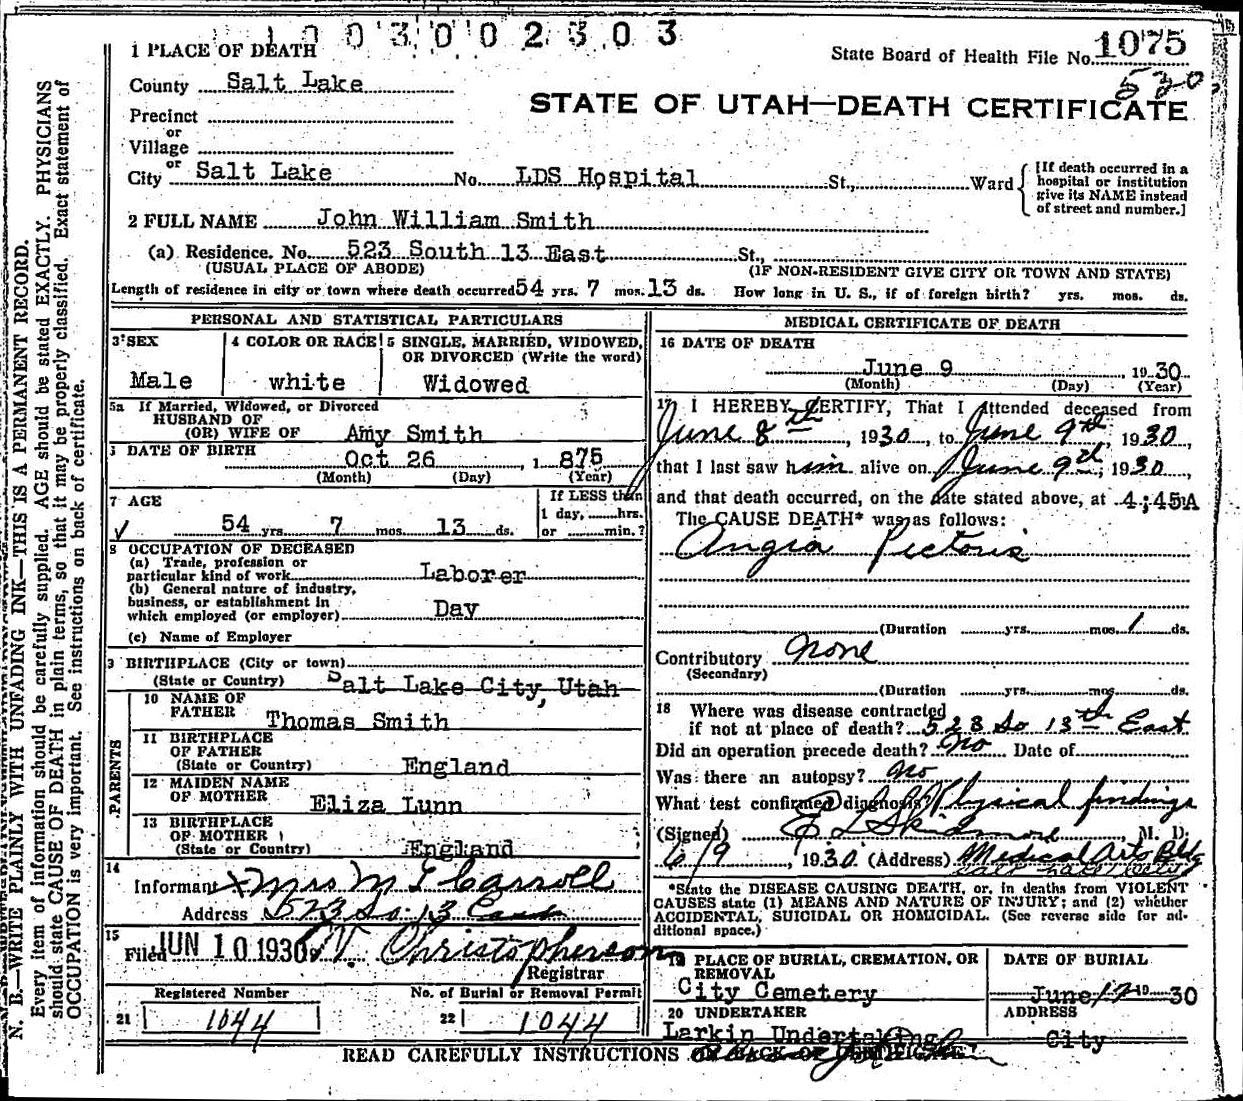 1003002303
1 PLACE OF DEATH
State Board of Health File No. 1075
530
County Salt Lake
STATE OF UTAH—DEATH CERTIFICATE
Precinct
or
Village
or
City Salt Lake No. LDS Hospital St., Ward
[If death occurred in a hospital or institution give its NAME instead of street and number.]
2 FULL NAME John William Smith
(a) Residence. No. 523 South 13 East St.,
(USUAL PLACE OF ABODE) (IF NON-RESIDENT GIVE CITY OR TOWN AND STATE)
Length of residence in city or town where death occurred 54 yrs. 7 mos. 13 ds. How long in U. S., if of foreign birth? yrs. mos. ds.
PERSONAL AND STATISTICAL PARTICULARS
3 SEX
Male
4 COLOR OR RACE
white
5 SINGLE, MARRIED, WIDOWED,
OR DIVORCED (Write the word)
Widowed
5a If Married, Widowed, or Divorced
HUSBAND OF
(OR) WIFE OF Amy Smith
DATE OF BIRTH
Oct 26, 1875
(Month) (Day) (Year)
7 AGE
54 yrs. 7 mos. 13 ds.
If LESS than
1 day, hrs.
or min.?
8 OCCUPATION OF DECEASED
(a) Trade, profession or
particular kind of work Laborer
(b) General nature of industry,
business, or establishment in
which employed (or employer) Day
(c) Name of Employer
9 BIRTHPLACE (City or town)
(State or Country) Salt Lake City, Utah
PARENTS
10 NAME OF
FATHER Thomas Smith
11 BIRTHPLACE
OF FATHER
(State or Country) England
12 MAIDEN NAME
OF MOTHER Eliza Lunn
13 BIRTHPLACE
OF MOTHER
(State or Country) England
14
Informant x Mrs M L Carroll
Address 523 So. 13 East
15
Filed JUN 10 1930 Christopherson
Registrar
Registered Number No. of Burial or Removal Permit
21 1044 22 1044
MEDICAL CERTIFICATE OF DEATH
16 DATE OF DEATH
June 9, 1930
(Month) (Day) (Year)
17 I HEREBY CERTIFY, That I Attended deceased from
June 8th, 1930, to June 9th, 1930,
that I last saw him alive on June 9th, 1930,
and that death occurred, on the date stated above, at 4;45A
The CAUSE DEATH* was as follows:
Angia Pectoris
(Duration yrs. mos. 1 ds.
Contributory None
(Secondary)
(Duration yrs. mos. ds.
18 Where was disease contracted
if not at place of death? 523 So 13th East
Did an operation precede death? No Date of
Was there an autopsy? No
What test confirmed diagnosis? Physical findings
(Signed) E L Skidmore, M. D.
6/9, 1930. (Address) Medical Arts Bldg
Salt Lake City
*State the DISEASE CAUSING DEATH, or, in deaths from VIOLENT
CAUSES state (1) MEANS AND NATURE OF INJURY; and (2) whether
ACCIDENTAL, SUICIDAL OR HOMICIDAL. (See reverse side for ad-
ditional space.)
19 PLACE OF BURIAL, CREMATION, OR
REMOVAL
City Cemetery
DATE OF BURIAL
June 12 1930
20 UNDERTAKER
Larkin Undertaking
ADDRESS
City
READ CAREFULLY INSTRUCTIONS ON BACK OF CERTIFICATE
N. B.—WRITE PLAINLY WITH UNFADING INK—THIS IS A PERMANENT RECORD.
Every item of information should be carefully supplied. AGE should be stated EXACTLY. PHYSICIANS
should state CAUSE OF DEATH in plain terms, so that it may be properly classified. Exact statement of
OCCUPATION is very important. See instructions on back of certificate.